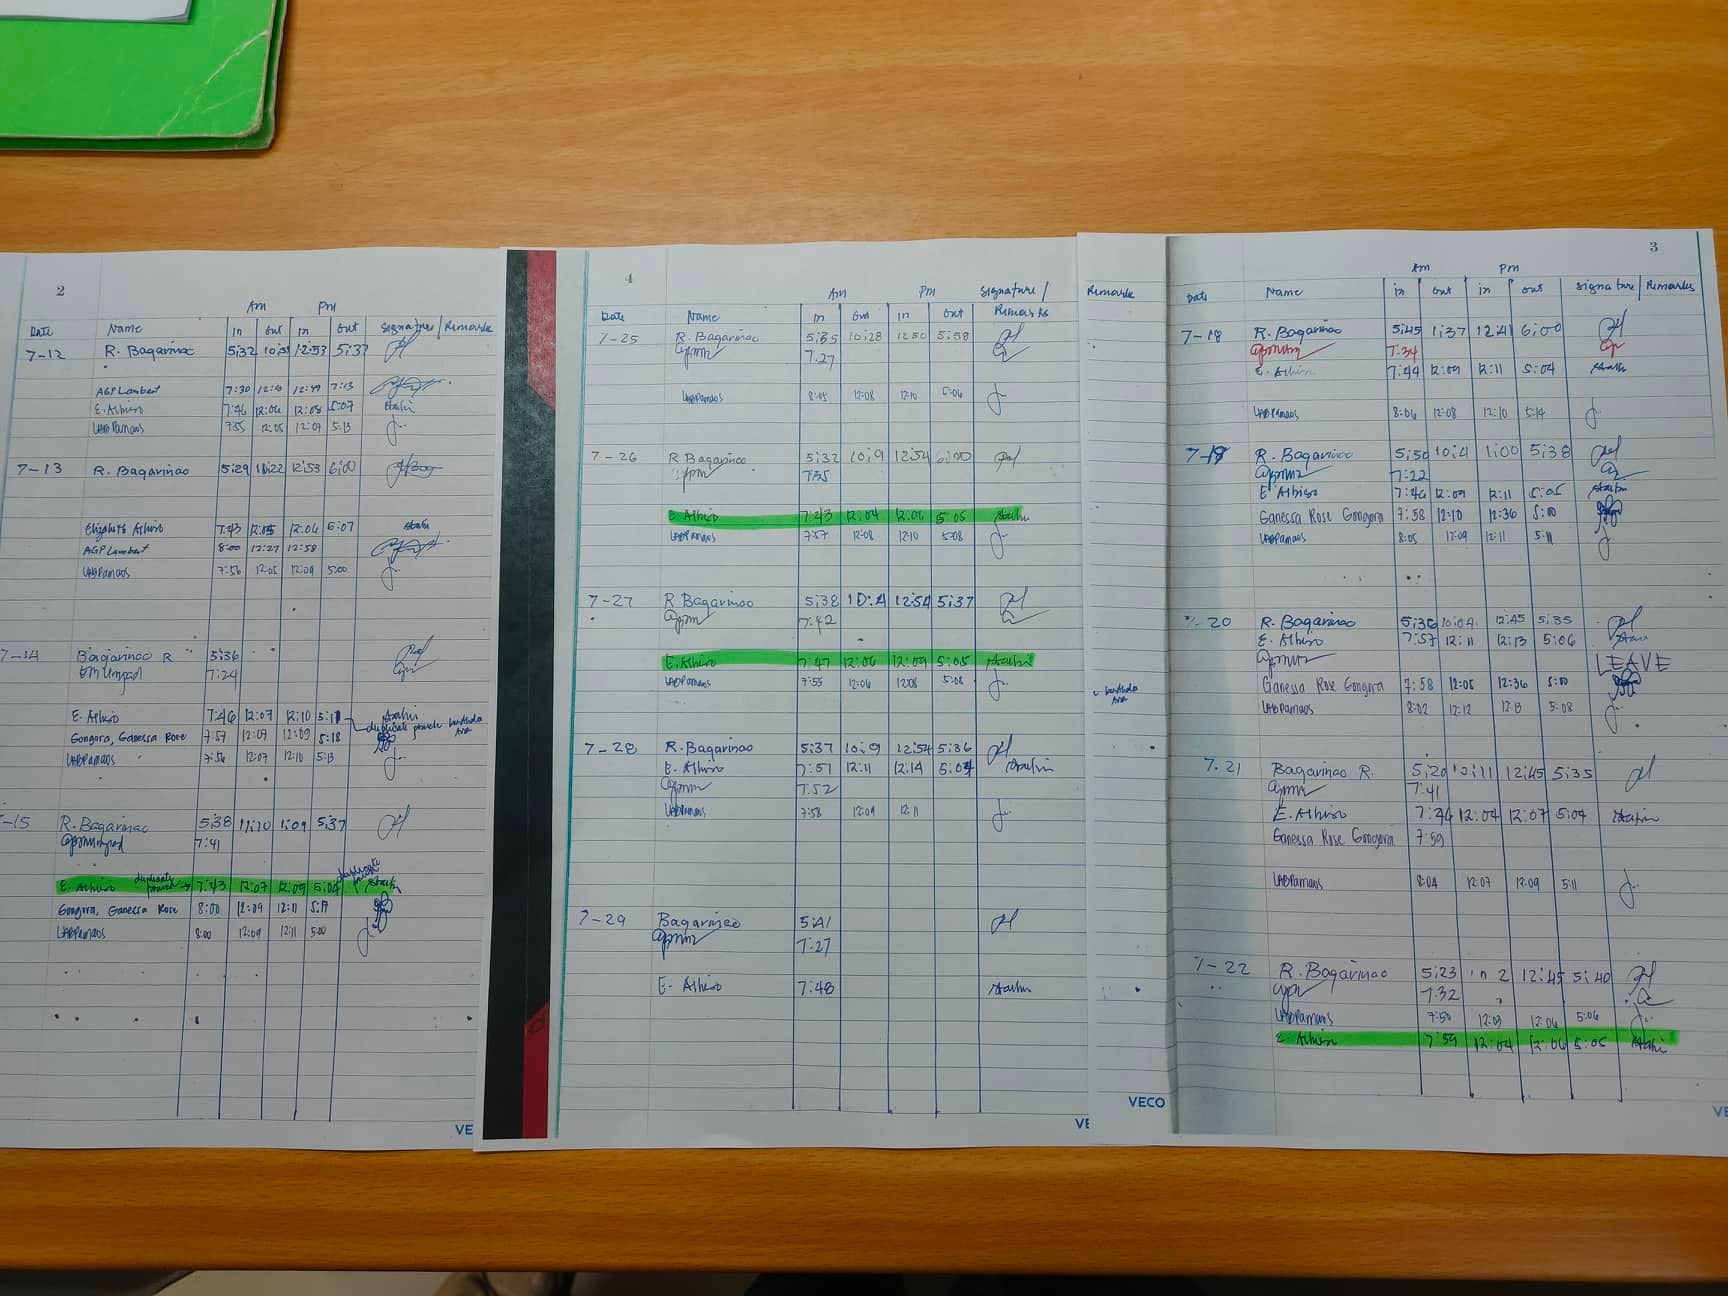 2
Am Pm
Date Name In out in out Signature/Remarks
7-12 R. Bagarinao 5:32 12:53 5:37
AGP Lambert 7:30 7:13
E. Athiro 7:46 12:06 12:08 5:07
LABPamaos 7:55 12:05 12:07 5:13
7-13 R. Bagarinao 5:29 10:22 12:53 6:00
Elizabeth Athiro 7:43 12:05 12:06 5:07
AGP Lambert 8:00 12:27 12:58
LABPamaos 7:56 12:05 12:09 5:00
7-14 Bagarinao R 5:36
7:24
E. Athiro 7:46 12:07 12:10 5:11
duplicate punch
Gongora, Ganessa Rose 7:57 12:09 12:09 5:18
LABPamaos 7:56 12:07 12:10 5:13
-15 R. Bagarinao 5:38 11:10 1:09 5:37
7:41
E. Athiro duplicate punch 7:43 12:07 12:09 5:06 duplicate punch
Gongora, Ganessa Rose 8:00 12:09 12:11 5:17
LABPamaos 8:00 12:09 12:11 5:00
VE
4
Am Pm Signature/
Date Name In out In out Remarks
7-25 R. Bagarinao 5:35 10:28 12:50 5:58
7:27
LABPamaos 8:05 12:08 12:10 5:06
7-26 R Bagarinao 5:32 10:9 12:54 6:00
7:35
E. Athiro 7:43 12:04 12:06 5:05
LABPamaos 7:57 12:08 12:10 5:08
7-27 R Bagarinao 5:38 10:4 12:54 5:37
7:42
E. Athiro 7:47 12:06 12:09 5:05
LABPamaos 7:55 12:06 12:08 5:08
7-28 R. Bagarinao 5:37 10:9 12:54 5:36
E. Athiro 7:51 12:11 12:14 5:04
7:52
LABPamaos 7:58 12:09 12:11
7-29 Bagarinao 5:41
7:27
E. Athiro 7:48
VE
Remarks
VECO
3
Am Pm
Date Name in out in out Signature/Remarks
7-18 R. Bagarinao 5:45 1:37 12:41 6:00
7:34
E. Athiro 7:44 12:09 12:11 5:04
LABPamaos 8:06 12:08 12:10 5:14
7-19 R. Bagarinao 5:50 10:4 1:00 5:38
7:22
E Athiro 7:46 12:09 12:11 5:05
Ganessa Rose Gongora 7:58 12:10 12:36 5:00
LABPamaos 8:05 12:09 12:11 5:11
7-20 R. Bagarinao 5:36 10:04 12:45 5:35
E. Athiro 7:57 12:11 12:13 5:06
LEAVE
Ganessa Rose Gongora 7:58 12:05 12:36 5:00
LABPamaos 8:02 12:12 12:13 5:08
7-21 Bagarinao R. 5:20 10:11 12:45 5:35
7:41
E. Athiro 7:46 12:04 12:07 5:04
Ganessa Rose Gongora 7:59
LABPamaos 8:04 12:07 12:09 5:11
7-22 R. Bagarinao 5:23 12:45 5:40
7:32
LABPamaos 7:50 12:03 12:06 5:06
E. Athiro 7:59 12:04 12:06 5:05
VE